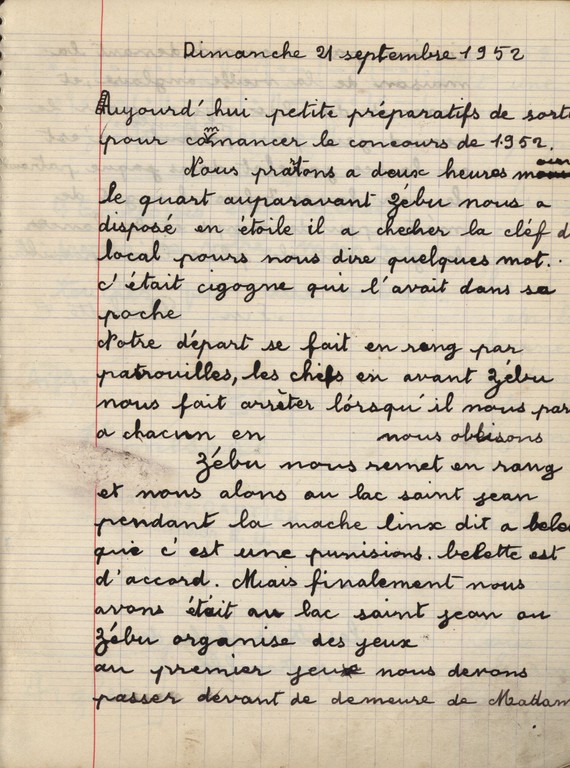 Dimanche 21 septembre 1952
Aujourd'hui petite préparatifs de sort
pour commancer le concours de 1952.
Nous pratons a deux heures
le quart auparavant Zébu nous a
disposé en étoile il a checher la cléf d
local pours nous dire quelques mot.
c'était cigogne qui l'avait dans sa
poche
Notre départ se fait en rang par
patrouilles, les chefs en avant Zébu
nous fait arrèter lórsqu'il nous par
a chacun en nous obbisons
Zébu nous remet en rang
et nous alons au lac saint jean
pendant la mache linx dit a bele
que c'est une punisions. belette est
d'accord. Mais finalement nous
avons étéit au lac saint jean ou
Zébu organise des jeux
au premier jeux nous devons
passer devant de demeure de Madam